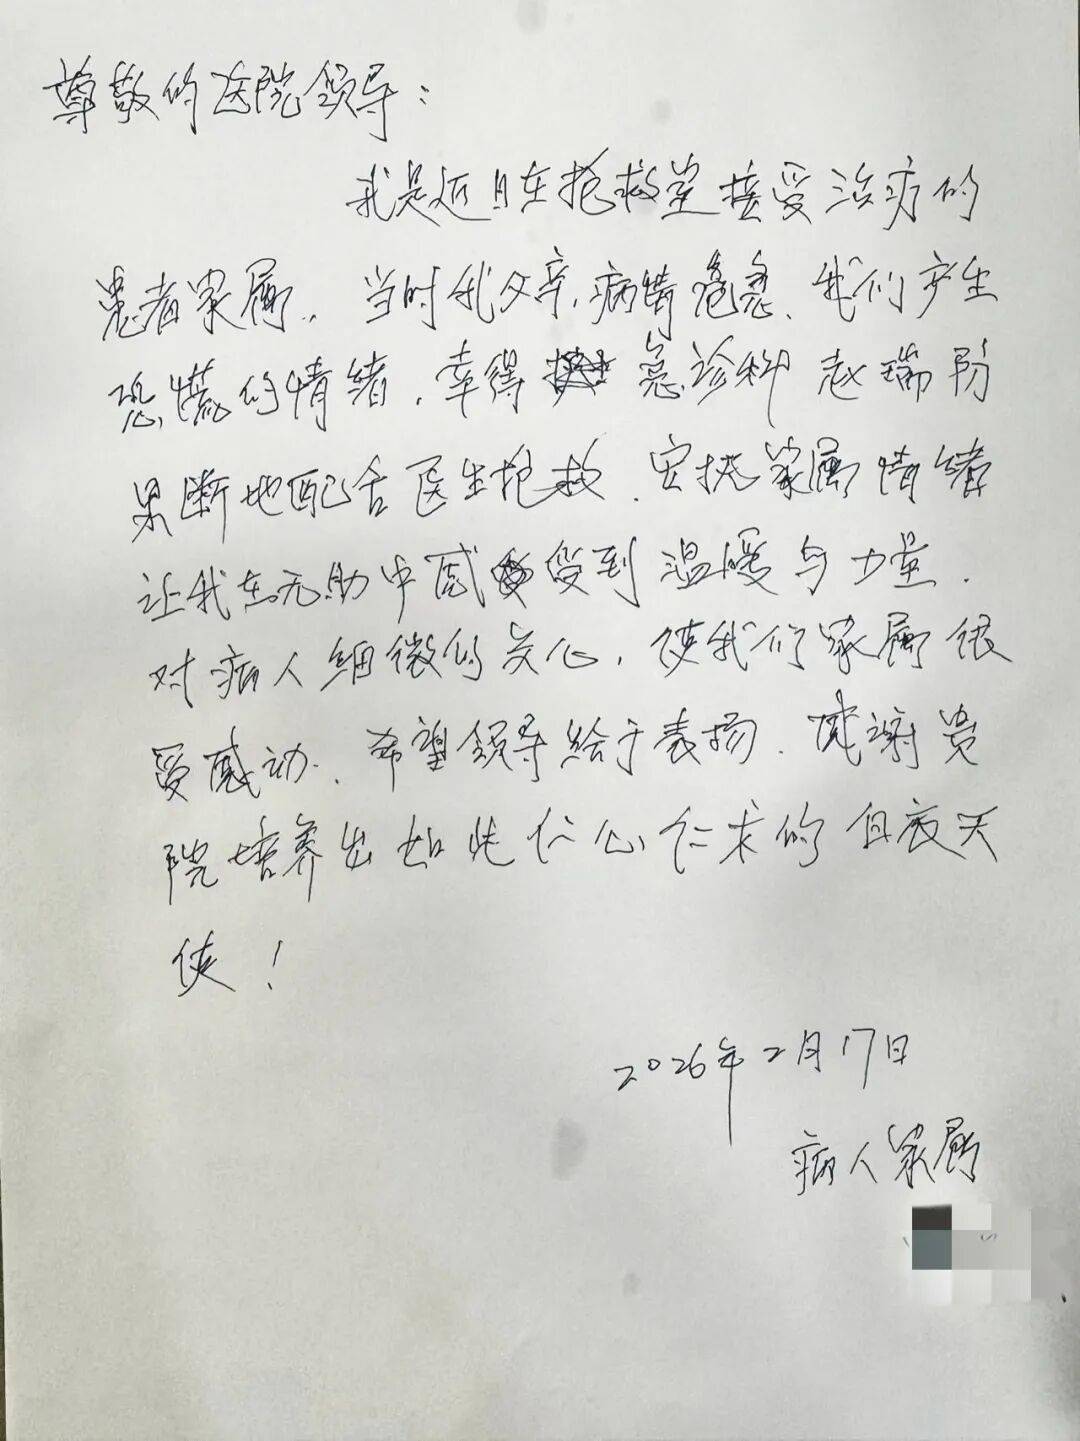 尊敬的医院领导：
我是近日在抢救室接受治疗的
患者家属，当时我父亲，病情危急、我们产生
恐慌的情绪，幸得急诊科赵瑞防
果断地配合医生抢救、安抚家属情绪
让我在无助中感受到温暖与力量.
对病人细微的关心，使我们家属很
受感动，希望领导给于表扬．感谢贵
院培养出如此仁心仁术的白衣天
使！
2026年2月17日
病人家属